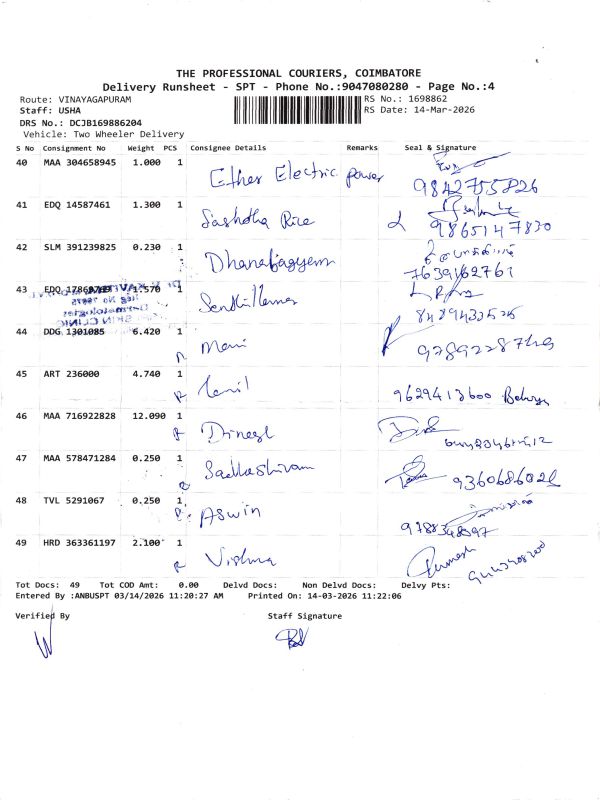 THE PROFESSIONAL COURIERS, COIMBATORE
Delivery Runsheet - SPT - Phone No.:9047080280 - Page No.:4
Route: VINAYAGAPURAM RS No.: 1698862
Staff: USHA RS Date: 14-Mar-2026
DRS No.: DCJB169886204
Vehicle: Two Wheeler Delivery
S No Consignment No Weight PCS Consignee Details Remarks Seal & Signature
40 MAA 304658945 1.000 1 Ether Electric power
9842755826
41 EDQ 14587461 1.300 1 Sashtha Rice
9865147830
42 SLM 391239825 0.230 1 Dhanabjagyem
7639162761
43 EDQ 1.570 1 Senthil
44 DDG 1301085 6.420 1 Mani
45 ART 236000 4.740 1 Tamil 9629413600
46 MAA 716922828 12.090 1 Dinesh
47 MAA 578471284 0.250 1 Sadhashivam
48 TVL 5291067 0.250 1 Aswin
9788348597
49 HRD 363361197 2.100 1 Vishnu
Tot Docs: 49 Tot COD Amt: 0.00 Delvd Docs: Non Delvd Docs: Delvy Pts:
Entered By :ANBUSPT 03/14/2026 11:20:27 AM Printed On: 14-03-2026 11:22:06
Verified By Staff Signature